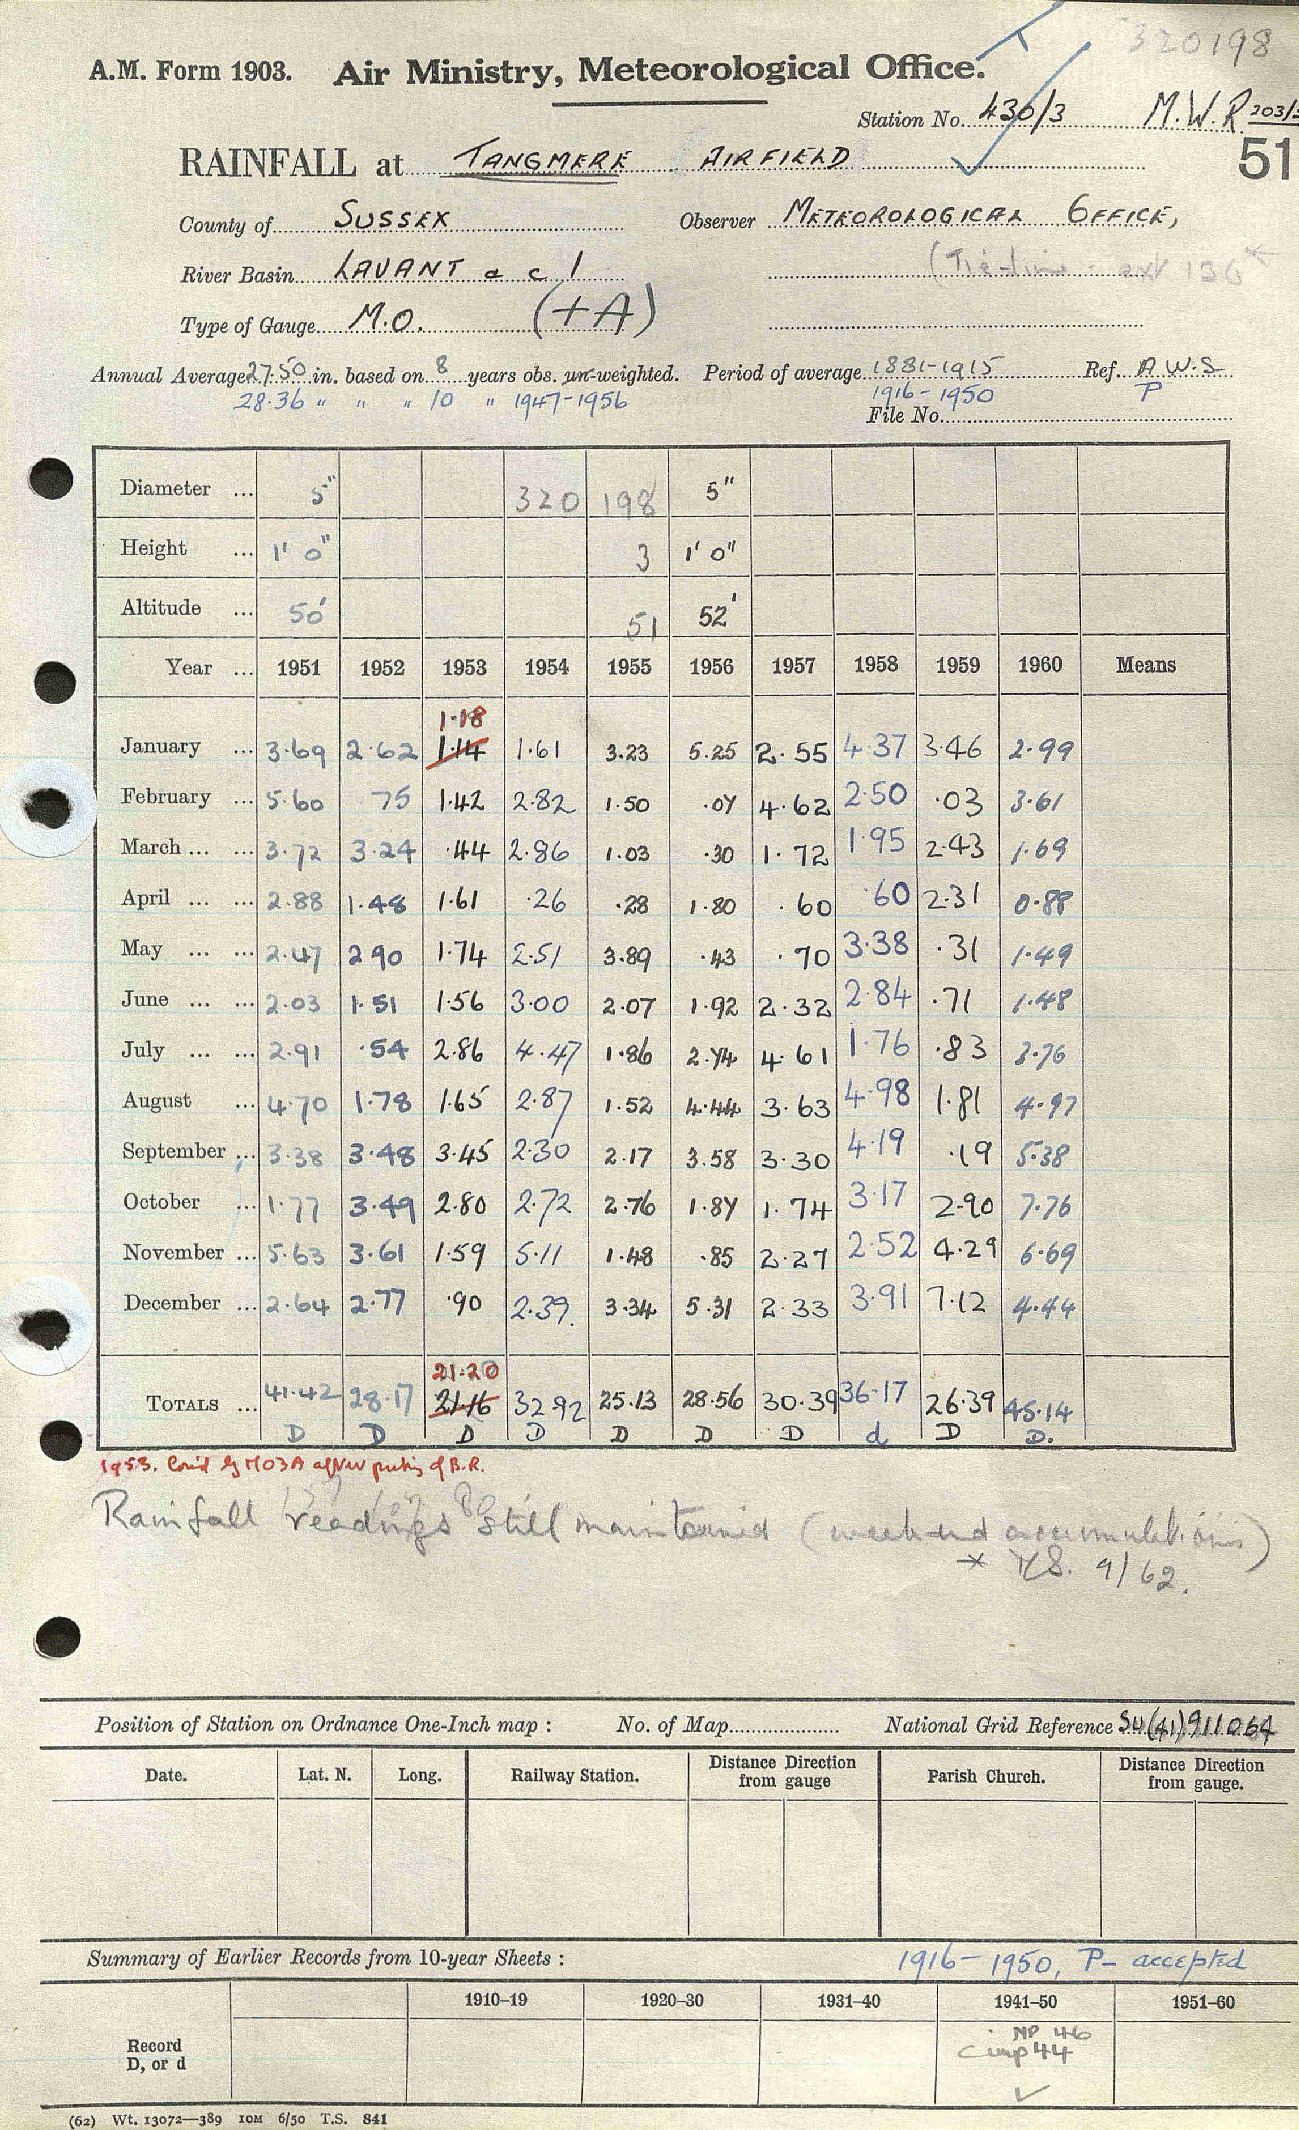 320198
A.M. Form 1903. Air Ministry, Meteorological Office.
Station No. 430/3 M.W.R. 203/
51
RAINFALL at TANGMERE AIRFIELD
County of SUSSEX Observer METEOROLOGICAL OFFICE,
River Basin LAVANT a c 1
Type of Gauge M.O. (+A)
Annual Average 27.50 in. based on 8 years obs. un-weighted. Period of average 1881-1915 Ref. A.W.S
28.36 " " " 10 " 1947-1956 1916-1950 P
File No.
Diameter ... 5" 320 198 5"
Height ... 1' 0" 3 1' 0"
Altitude ... 50' 51 52'
Year ... 1951 1952 1953 1954 1955 1956 1957 1958 1959 1960 Means
1.18
January ... 3.69 2.62 1.14 1.61 3.23 5.25 2.55 4.37 3.46 2.99
February ... 5.60 75 1.42 2.82 1.50 .07 4.62 2.50 .03 3.61
March ... ... 3.72 3.24 .44 2.86 1.03 .30 1.72 1.95 2.43 1.69
April ... ... 2.88 1.48 1.61 .26 .28 1.80 .60 60 2.31 0.88
May ... ... 2.47 2 90 1.74 2.51 3.89 .43 .70 3.38 .31 1.49
June ... ... 2.03 1.51 1.56 3.00 2.07 1.92 2.32 2.84 .71 1.48
July ... ... 2.91 .54 2.86 4.47 1.86 2.74 4.61 1.76 .83 3.76
August ... 4.70 1.78 1.65 2.87 1.52 4.44 3.63 4.98 1.81 4.97
September ... 3.38 3.48 3.45 2.30 2.17 3.58 3.30 4.19 .19 5.38
October ... 1.77 3.49 2.80 2.72 2.76 1.87 1.74 3.17 2.90 7.76
November ... 5.63 3.61 1.59 5.11 1.48 .85 2.27 2.52 4.29 6.69
December ... 2.64 2.77 .90 2.39. 3.34 5.31 2.33 3.91 7.12 4.44
21.20
TOTALS ... 41.42 28.17 21.16 32.92 25.13 28.56 30.39 36.17 26.39 45.14
D D D D D D D d D D.
1953. by M03A after of B.R.
Rainfall readings still maintained (week-end accumulations)
9/62.
Position of Station on Ordnance One-Inch map : No. of Map National Grid Reference SU(41)911064
Date. Lat. N. Long. Railway Station. Distance from gauge Direction Parish Church. Distance Direction from gauge.
Summary of Earlier Records from 10-year Sheets : 1916-1950, P- accepted
1910–19 1920–30 1931–40 1941–50 1951–60
Record D, or d NP 46
44
(62) Wt. 13072—389 10M 6/50 T.S. 841